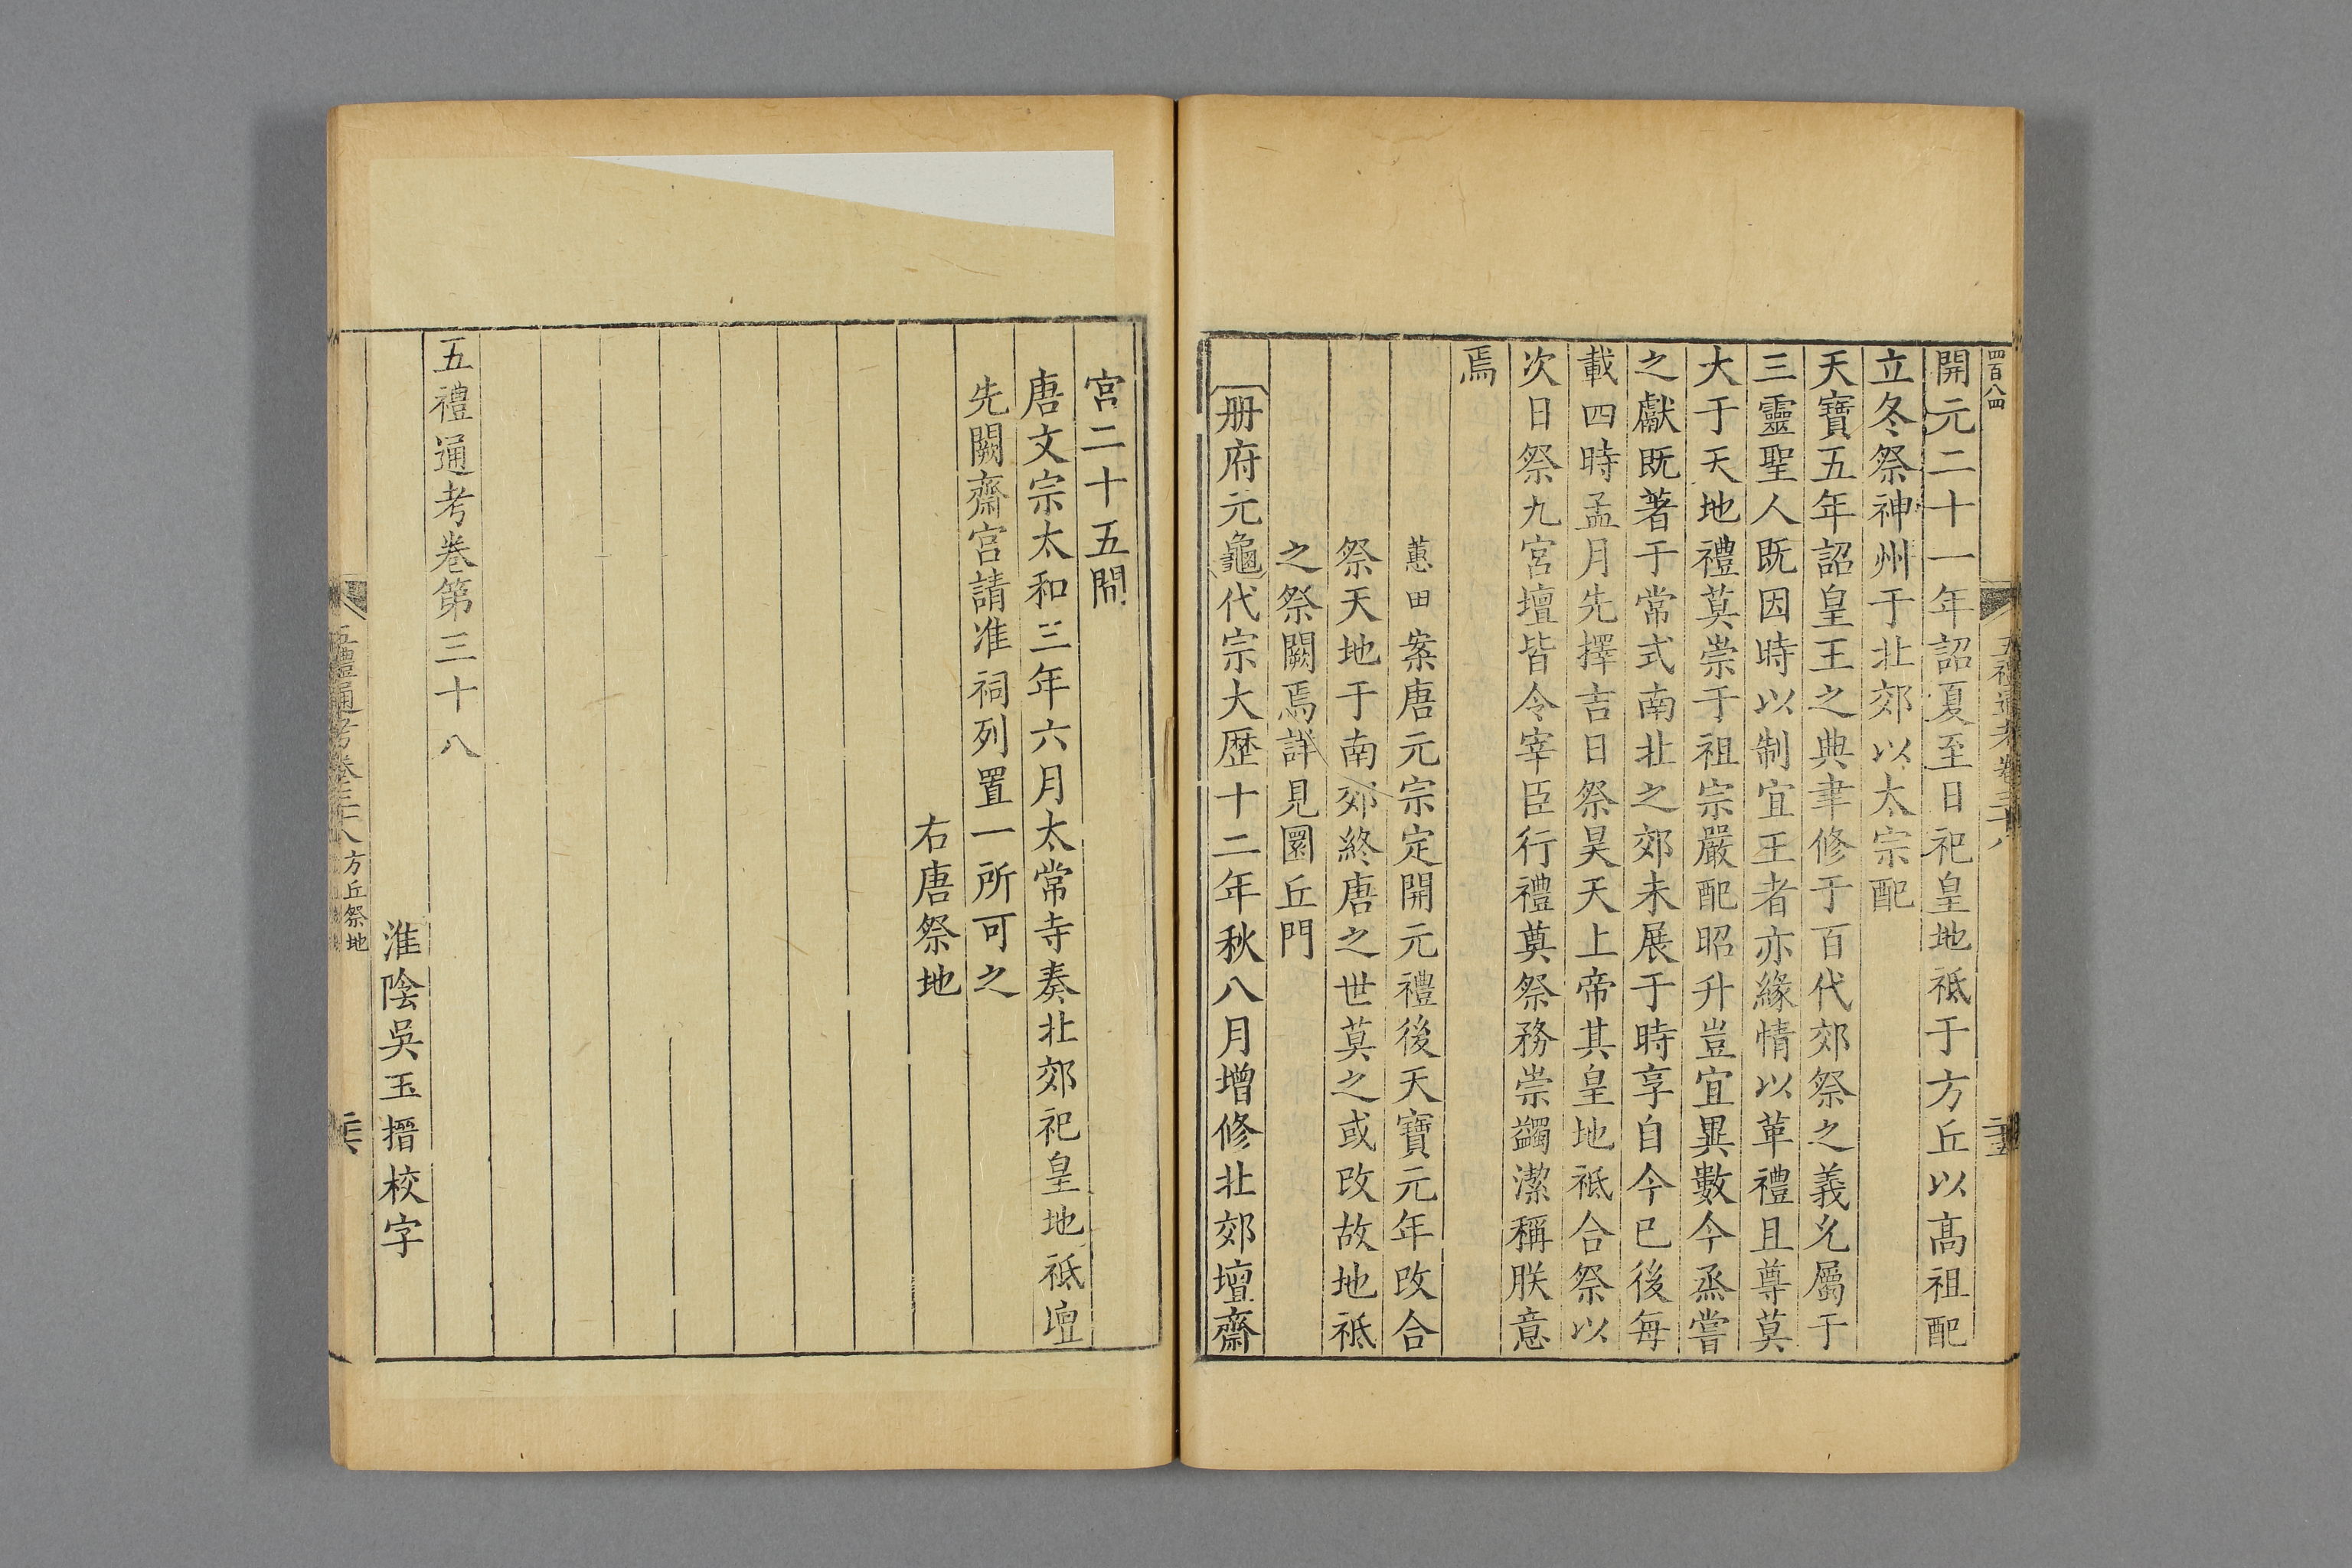 四百八四
五禮通考卷三十八
二十五
開元二十一年詔夏至日祀皇地祇于方丘以高祖配
立冬祭神州于北郊以太宗配
天寶五年詔皇王之典聿修于百代郊祭之義允屬于
三靈聖人既因時以制宜王者亦緣情以革禮且尊莫
大于天地禮莫崇于祖宗嚴配昭升豈宜異數今烝嘗
之獻既著于常式南北之郊未展于時享自今已後每
載四時孟月先擇吉日祭昊天上帝其皇地祇合祭以
次日祭九宮壇皆令宰臣行禮奠祭務崇蠲潔稱朕意
焉
蕙田案唐元宗定開元禮後天寶元年改合
祭天地于南郊終唐之世莫之或改故地祇
之祭闕焉詳見圜丘門
册府元龜代宗大歷十二年秋八月增修北郊壇齋
宮二十五間
唐文宗太和三年六月太常寺奏北郊祀皇地祇壇
先闕齋宮請准祠列置一所可之
右唐祭地
五禮通考卷第三十八
淮陰吳玉搢校字
五禮通考卷三十八 方丘祭地
二十六